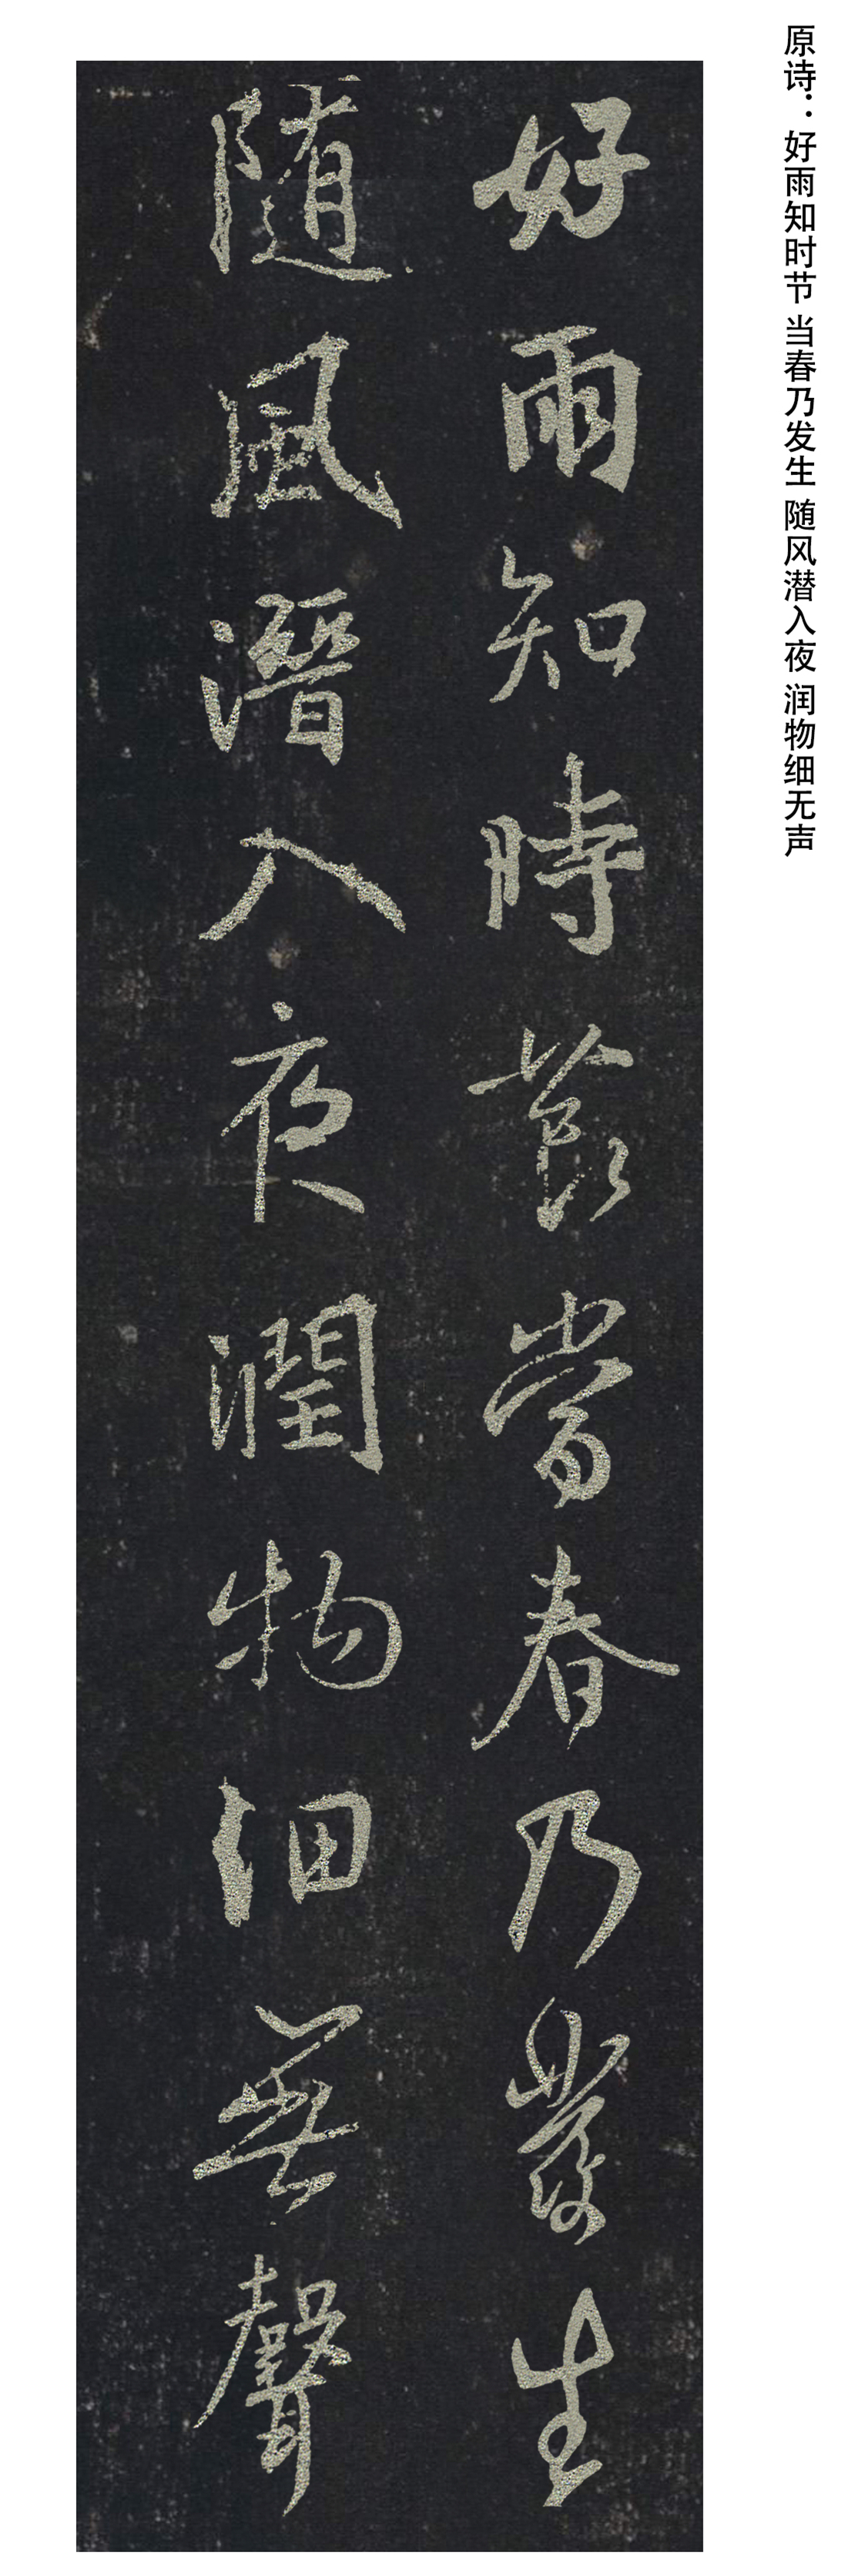 原诗：好雨知时节 当春乃发生 随风潜入夜 润物细无声
好雨知時節當春乃發生
随風潛入夜潤物細無聲